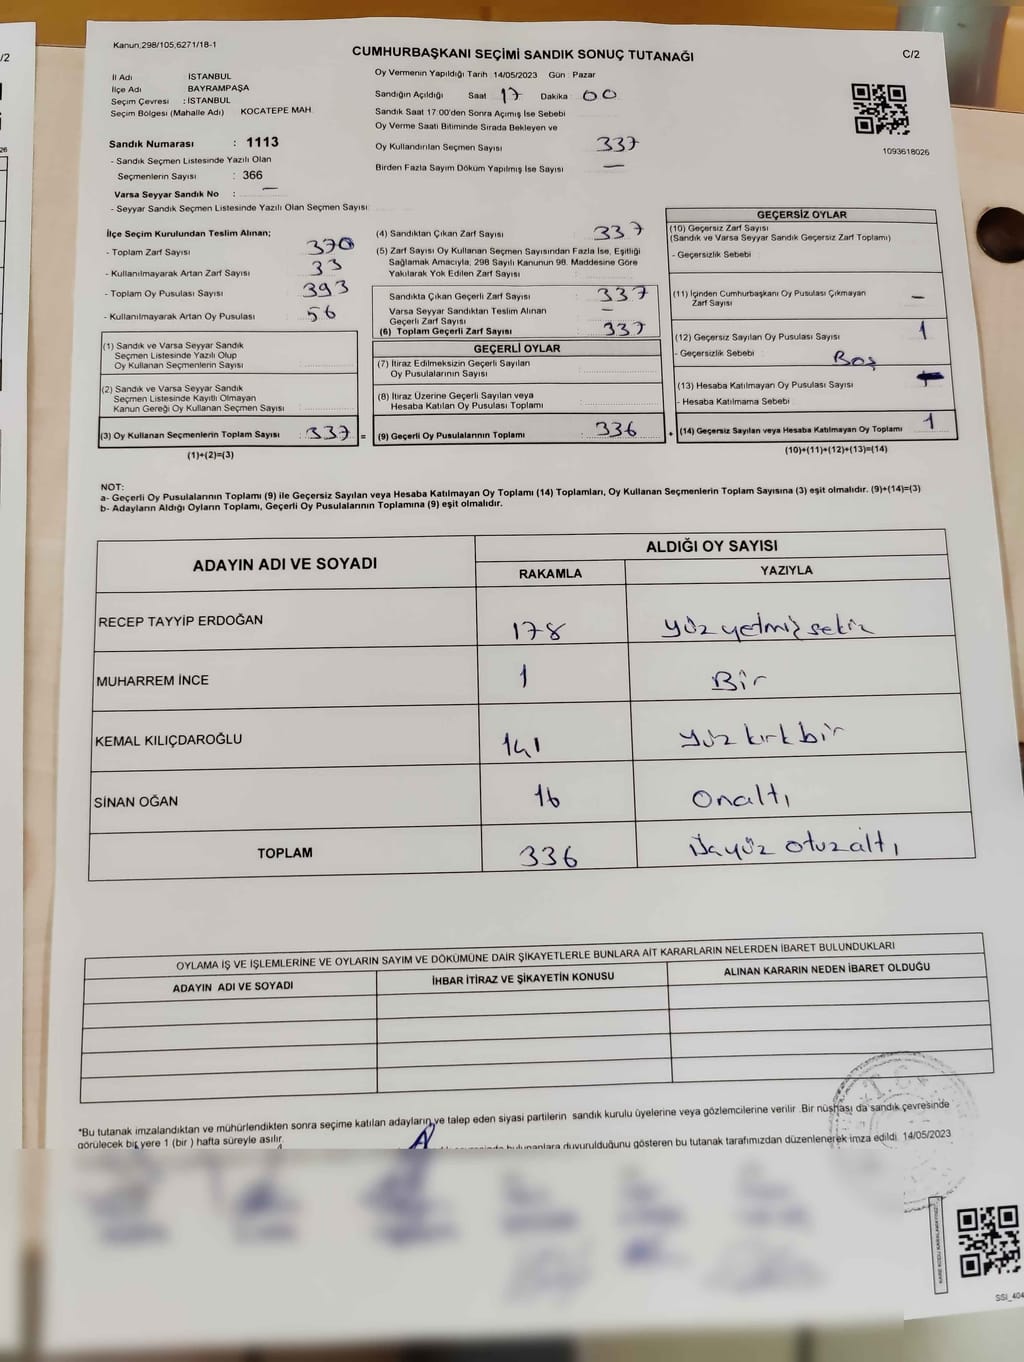 /2
Kanun;298/105,6271/18-1
CUMHURBAŞKANI SEÇİMİ SANDIK SONUÇ TUTANAĞI
C/2
İl Adı İSTANBUL
İlçe Adı BAYRAMPAŞA
Seçim Çevresi : İSTANBUL
Seçim Bölgesi (Mahalle Adı) KOCATEPE MAH.
Sandık Numarası : 1113
- Sandık Seçmen Listesinde Yazılı Olan
Seçmenlerin Sayısı : 366
Varsa Seyyar Sandık No : —
- Seyyar Sandık Seçmen Listesinde Yazılı Olan Seçmen Sayısı:
Oy Vermenin Yapıldığı Tarih 14/05/2023 Gün : Pazar
Sandığın Açıldığı Saat 17 Dakika 00
Sandık Saat 17:00'den Sonra Açımış İse Sebebi
Oy Verme Saati Bitiminde Sırada Bekleyen ve
Oy Kullandırılan Seçmen Sayısı 337
Birden Fazla Sayım Döküm Yapılmış İse Sayısı —
1093618026
İlçe Seçim Kurulundan Teslim Alınan;
- Toplam Zarf Sayısı 370
- Kullanılmayarak Artan Zarf Sayısı 33
- Toplam Oy Pusulası Sayısı 393
- Kullanılmayarak Artan Oy Pusulası 56
(1) Sandık ve Varsa Seyyar Sandık
Seçmen Listesinde Yazılı Olup
Oy Kullanan Seçmenlerin Sayısı
(2) Sandık ve Varsa Seyyar Sandık
Seçmen Listesinde Kayıtlı Olmayan
Kanun Gereği Oy Kullanan Seçmen Sayısı
(3) Oy Kullanan Seçmenlerin Toplam Sayısı 337 =
(1)+(2)=(3)
(4) Sandıktan Çıkan Zarf Sayısı 337
(5) Zarf Sayısı Oy Kullanan Seçmen Sayısından Fazla İse, Eşitliği
Sağlamak Amacıyla, 298 Sayılı Kanunun 98. Maddesine Göre
Yakılarak Yok Edilen Zarf Sayısı
Sandıkta Çıkan Geçerli Zarf Sayısı 337
Varsa Seyyar Sandıktan Teslim Alınan —
Geçerli Zarf Sayısı
(6) Toplam Geçerli Zarf Sayısı 337
GEÇERLİ OYLAR
(7) İtiraz Edilmeksizin Geçerli Sayılan
Oy Pusulalarının Sayısı
(8) İtiraz Üzerine Geçerli Sayılan veya
Hesaba Katılan Oy Pusulası Toplamı
(9) Geçerli Oy Pusulalarının Toplamı 336 +
GEÇERSİZ OYLAR
(10) Geçersiz Zarf Sayısı
(Sandık ve Varsa Seyyar Sandık Geçersiz Zarf Toplamı)
- Geçersizlik Sebebi
(11) İçinden Cumhurbaşkanı Oy Pusulası Çıkmayan
Zarf Sayısı —
(12) Geçersiz Sayılan Oy Pusulası Sayısı 1
- Geçersizlik Sebebi Boş
(13) Hesaba Katılmayan Oy Pusulası Sayısı
- Hesaba Katılmama Sebebi
(14) Geçersiz Sayılan veya Hesaba Katılmayan Oy Toplamı 1
(10)+(11)+(12)+(13)=(14)
NOT:
a- Geçerli Oy Pusulalarının Toplamı (9) ile Geçersiz Sayılan veya Hesaba Katılmayan Oy Toplamı (14) Toplamları, Oy Kullanan Seçmenlerin Toplam Sayısına (3) eşit olmalıdır. (9)+(14)=(3)
b- Adayların Aldığı Oyların Toplamı, Geçerli Oy Pusulalarının Toplamına (9) eşit olmalıdır.
ADAYIN ADI VE SOYADI ALDIĞI OY SAYISI
RAKAMLA YAZIYLA
RECEP TAYYİP ERDOĞAN 178 yüz yetmiş sekiz
MUHARREM İNCE 1 Bir
KEMAL KILIÇDAROĞLU 141 yüz kırk bir
SİNAN OĞAN 16 Onaltı
TOPLAM 336 Üçyüz otuzaltı
OYLAMA İŞ VE İŞLEMLERİNE VE OYLARIN SAYIM VE DÖKÜMÜNE DAİR ŞİKAYETLERLE BUNLARA AİT KARARLARIN NELERDEN İBARET BULUNDUKLARI
ADAYIN ADI VE SOYADI İHBAR İTİRAZ VE ŞİKAYETİN KONUSU ALINAN KARARIN NEDEN İBARET OLDUĞU
*Bu tutanak imzalandıktan ve mühürlendikten sonra seçime katılan adayların ve talep eden siyasi partilerin sandık kurulu üyelerine veya gözlemcilerine verilir. Bir nüshası da sandık çevresinde
görülecek bir yere 1 (bir ) hafta süreyle asılır.
bulunanlara duyurulduğunu gösteren bu tutanak tarafımızdan düzenlenerek imza edildi. 14/05/2023
T.C.
SSİ_404